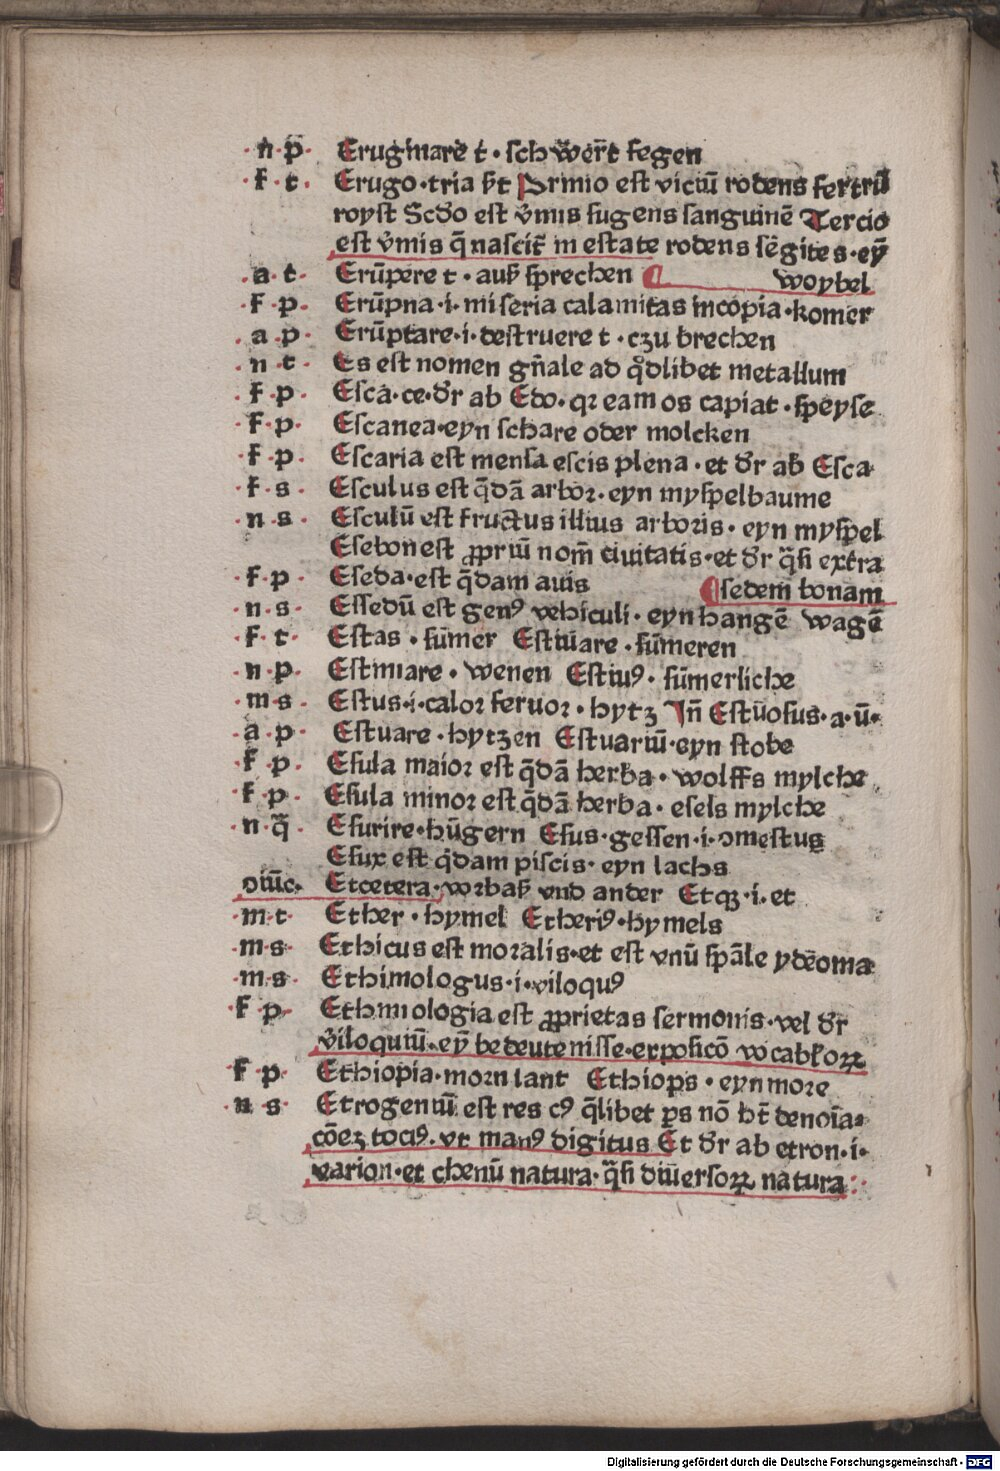 ·n·p· Eruginare t·schwer̄t fegen
·f·t· Erugo·tria ſt̄ Prmio est viciū rodens fertrū
royst Scd̄o est v̄mis sugens sanguinē Tercio
est v̄mis q̄ nascit̄ in estate rodens sēgites·eȳ
·a·t· Erūpere t·auß sprechen woybel
·f·p· Erūpna·i·miseria calamitas incopia·komer
·a·p· Erūptare·i·destruere t·czu brechen
·n·t· Es est nomen gn̄ale ad qd̄libet metallum
·f·p· Esca·ce·dr̄ ab Edo·qꝛ eam os capiat·speyse
·f·p· Escanea·eyn schare oder molcken
·f·p· Escaria est mensa escis plena·et dr̄ ab Esca
·f·s· Esculus est q̄dā arboꝛ·eyn myspelbaume
·n·s· Esculū est fructus illius arboris·eyn myspel
Esebon est ꝓpriū nom̄ ciuitatis·et dr̄ q̄si extra
·f·p· Eseda·est q̄dam auis sedem bonam
·n·s· Essedū est genꝰ vehiculi·eyn hangē wagē
·f·t· Estas·sūmer Estiuare·sūmeren
·n·p· Estimare·wenen Estiuꝰ·sūmerliche
·m·s· Estus·i·caloꝛ feruoꝛ·hytz Jn̄ Estuosus·a·ū·
·a·p· Estuare·hytzen Estuariū·eyn stobe
·f·p· Esula maioꝛ est q̄dā herba·wolffs mylche
·f·p· Esula minoꝛ est q̄dā herba·esels mylche
·n·q̄· Esurire·hūgern Esus·gessen·i·ꝯmestus
Esux est q̄dam piscis·eyn lachs
ꝯiūc· Etcetera·voꝛbaß vnd ander Etqꝫ·i·et
·m·t· Ether·hymel Etheriꝰ·hymels
·m·s· Ethicus est moꝛalis·et est vnū spāle ydeoma
·m·s· Ethimologus·i·viloquꝰ
·f·p· Ethimologia est ꝓprietas sermonis·vel dr̄
v̄iloquiū·eȳ bedeutenisse·exposicō vocabl̄oꝝ
·f·p· Ethiopia·morn lant Ethiops·eyn more
·n·s· Etrogeniū est res cꝰ q̄libet ꝑs nō ht̄ denoīa⸗
cōeꝫ tociꝰ·vt manꝰ digitus Et dr̄ ab etron·i·
varion·et chenū natura·q̄si diūersoꝝ natura:
Digitalisierung gefördert durch die Deutsche Forschungsgemeinschaft - DFG